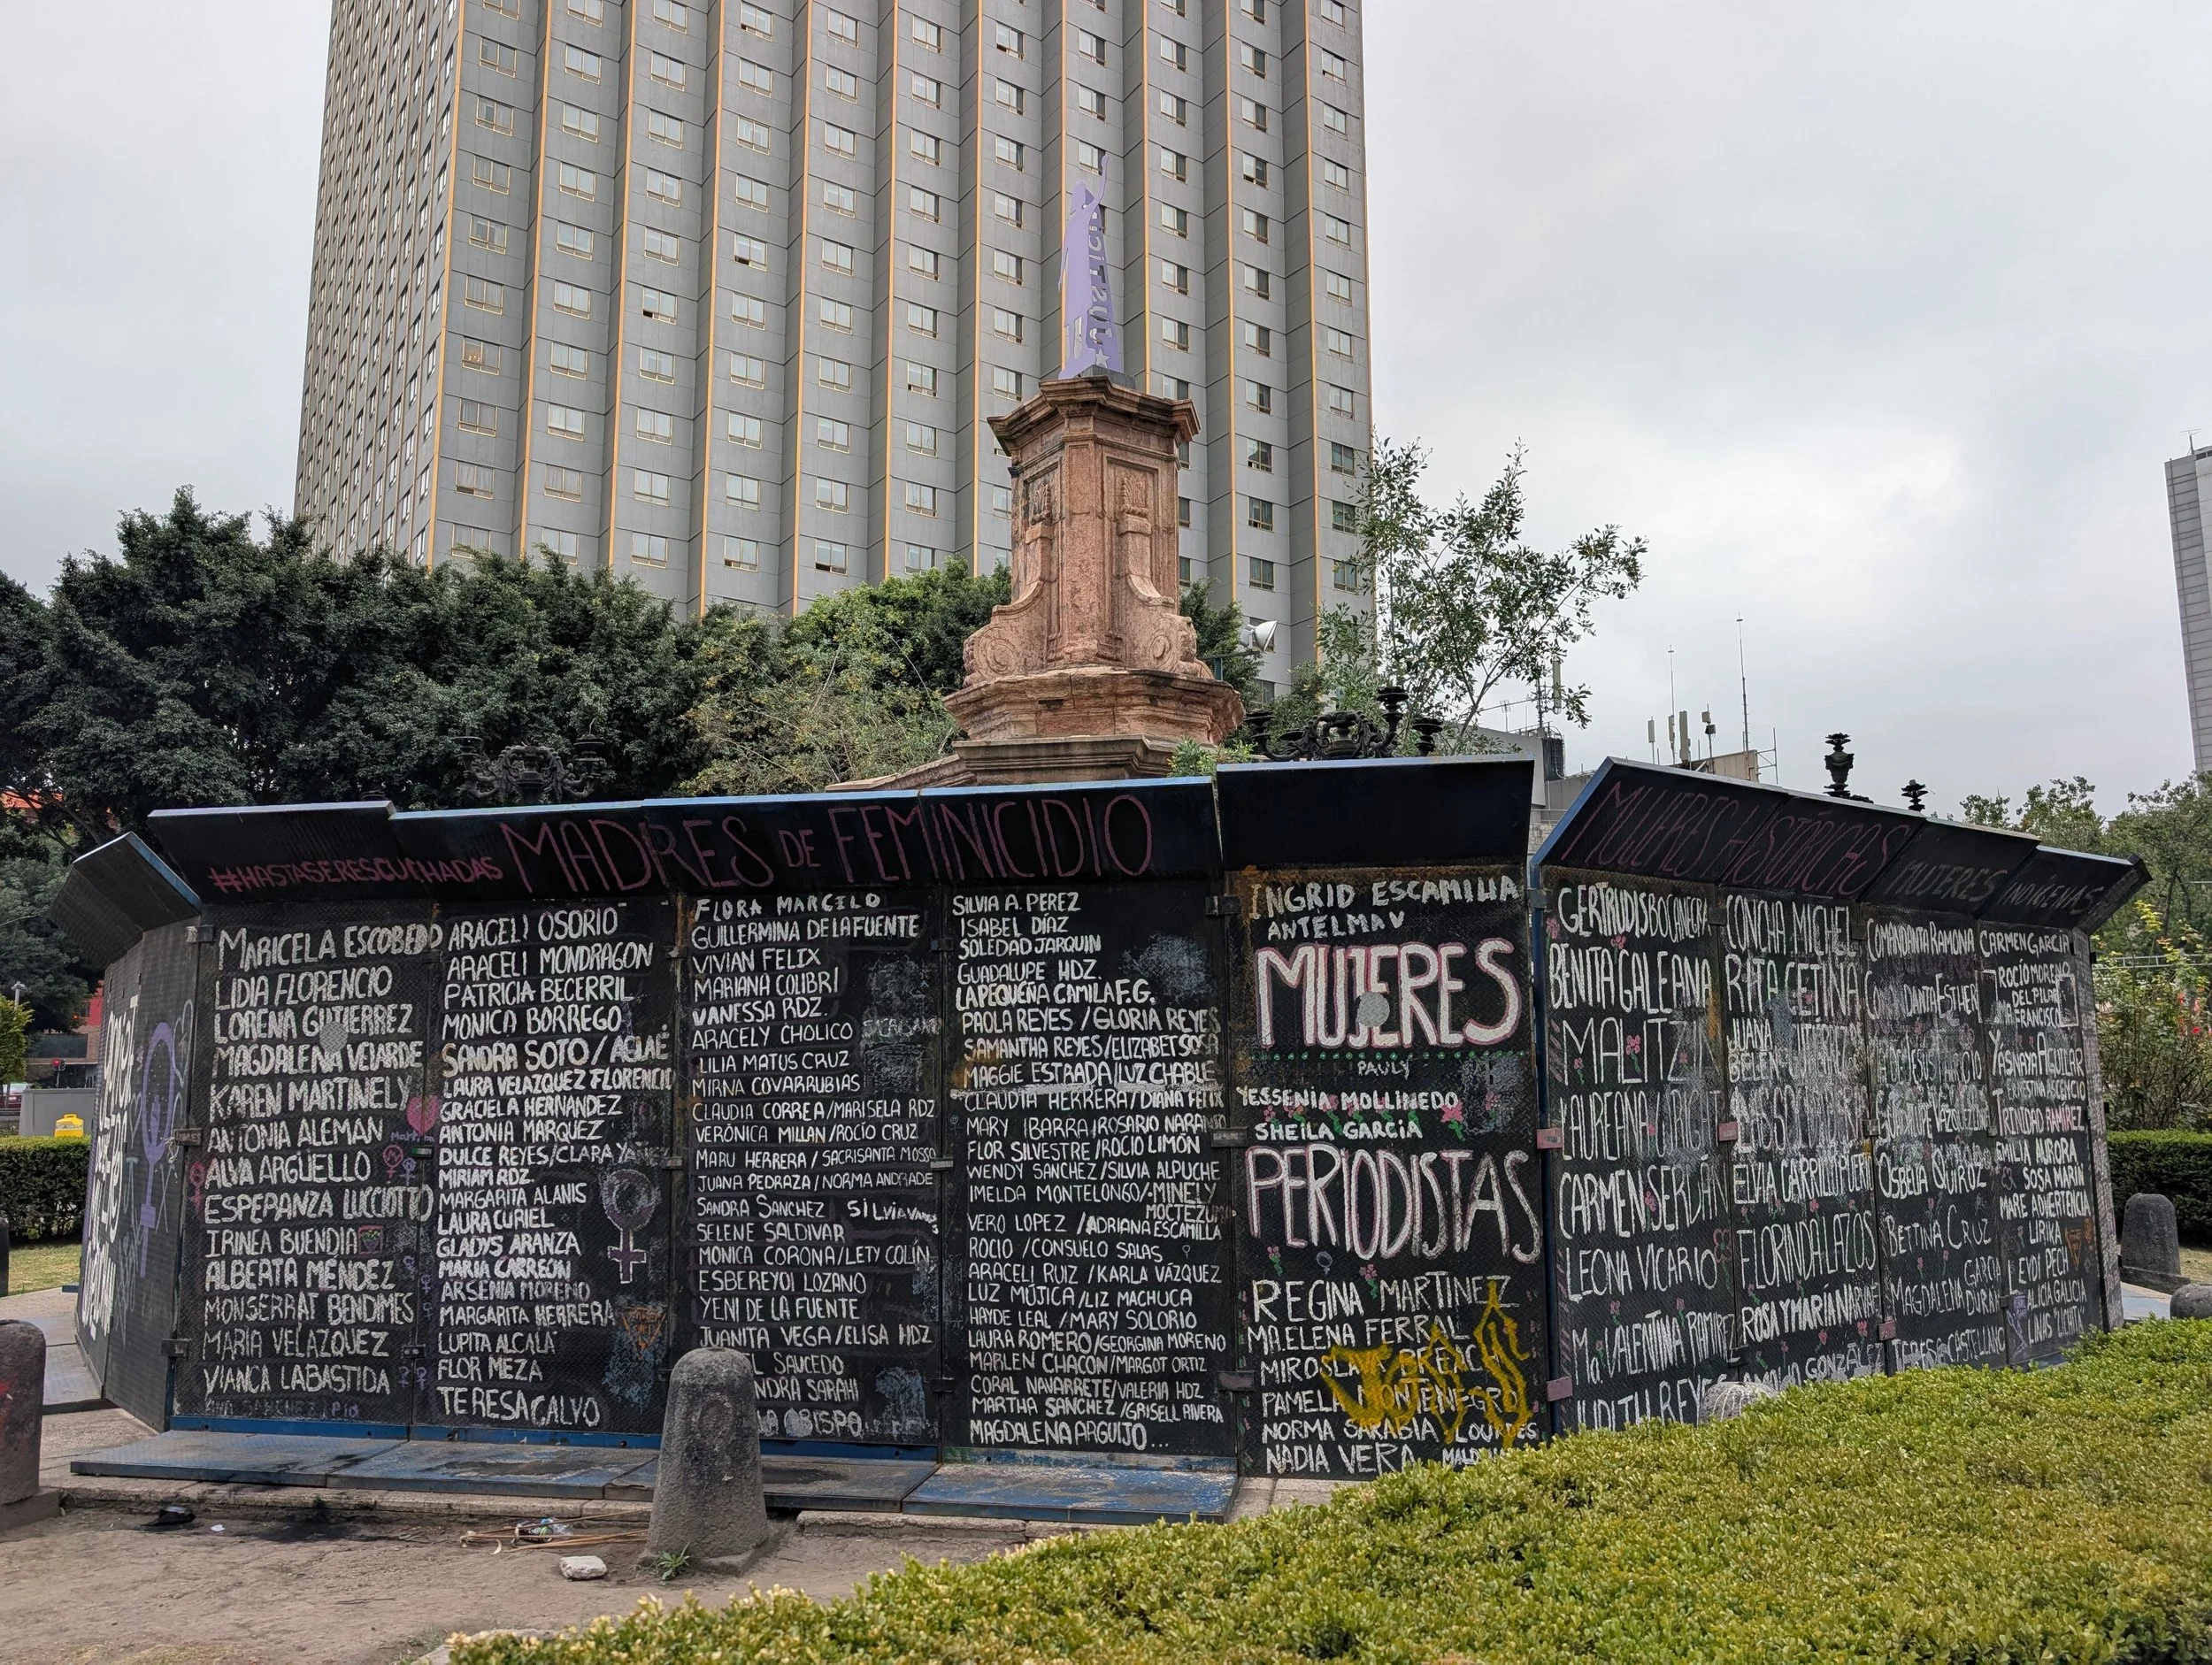 JUSTICIA
#HASTASERESCUCHADAS MADRES DE FEMINICIDIO
MARICELA ESCOBEDO
LIDIA FLORENCIO
LORENA GUTIERREZ
MAGDALENA VELARDE
KAREN MARTINELY
ANTONIA ALEMAN
ALVA ARGÜELLO
ESPERANZA LUCCIOTTO
IRINEA BUENDIA
ALBERTA MÉNDEZ
MONSERRAT BENDIMES
MARIA VELAZQUEZ
VIANCA LABASTIDA
ARACELI OSORIO
ARACELI MONDRAGON
PATRICIA BECERRIL
MONICA BORREGO
SANDRA SOTO / AGLAÉ
LAURA VELAZQUEZ FLORENCIO
GRACIELA HERNANDEZ
ANTONIA MARQUEZ
DULCE REYES/CLARA
MIRIAM RDZ.
MARGARITA ALANIS
LAURA CURIEL
GLADYS ARANZA
MARIA CARREON
ARSENIA MORENO
MARGARITA HERRERA
LUPITA ALCALA
FLOR MEZA
TERESA CALVO
FLORA MARCELO
GUILLERMINA DE LA FUENTE
VIVIAN FELIX
MARIANA COLIBRI
VANESSA RDZ.
ARACELY CHOLICO
LILIA MATUS CRUZ
MIRNA COVARRUBIAS
CLAUDIA CORREA/MARISELA RDZ
VERÓNICA MILLAN/ROCÍO CRUZ
MARU HERRERA / SACRISANTA MOSSO
JUANA PEDRAZA / NORMA ANDRADE
SANDRA SANCHEZ
SELENE SALDIVAR
MONICA CORONA/LETY COLÍN
ESBEREYDI LOZANO
YENI DE LA FUENTE
JUANITA VEGA / ELISA HDZ
SAUCEDO
SARAHI
OBISPO
SILVIA A. PEREZ
ISABEL DÍAZ
SOLEDAD JARQUIN
GUADALUPE HDZ.
LA PEQUEÑA CAMILA F.G.
PAOLA REYES / GLORIA REYES
SAMANTHA REYES/ELIZABET SOSA
MAGGIE ESTRADA/LUZ CHABLE
CLAUDIA HERRERA/DIANA FELIX
MARY IBARRA/ROSARIO
FLOR SILVESTRE/ROCIO LIMÓN
WENDY SANCHEZ/SILVIA ALPUCHE
IMELDA MONTELONGO/MINELY
MOCTEZUMA
VERO LOPEZ /ADRIANA ESCAMILLA
ROCIO /CONSUELO SALAS
ARACELI RUIZ /KARLA VÁZQUEZ
LUZ MÚJICA/LIZ MACHUCA
HAYDE LEAL /MARY SOLORIO
LAURA ROMERO/GEORGINA MORENO
MARLEN CHACON/MARGOT ORTIZ
CORAL NAVARRETE/VALERIA HDZ
MARTHA SANCHEZ /GRISELL RIVERA
MAGDALENA ARGUIJO...
INGRID ESCAMILLA
MUJERES
PAULY
YESSENIA MOLLINEDO
SHEILA GARCIA
PERIODISTAS
REGINA MARTINEZ
MA.ELENA FERRAL
MIROSLAVA BREACH
PAMELA MONTENEGRO
NORMA SARABIA LOURDES
NADIA VERA
MUJERES HISTÓRICAS
GERTRUDIS BOCANEGRA
BENITA GALEANA
MALITZIN
CARMEN SERDÁN
LEONA VICARIO
Ma VALENTINA RAMIREZ
JUDITH REYES
CONCHA MICHEL
RITA CETINA
ELVIA CARRILLO PUERTO
FLORINDA LAZOS
ROSA Y MARÍA NARVAEZ
GONZÁLEZ
MUJERES INDÍGENAS
COMANDANTA RAMONA
COMANDANTA ESTHER
OSBELIA QUIROZ
BETTINA CRUZ
MAGDALENA GARCIA
DURAN
TERESA CASTELLANO
CARMEN GARCIA
ROCÍO MORENO
DEL PILAR
YASNAYA AGUILAR
ERNESTINA ASCENCIO
TRINIDAD RAMÍREZ
EMILIA AURORA
SOSA MARIN
MARE ADVERTENCIA
LIRIKA
LEYDI PECH
ALICIA GALICIA